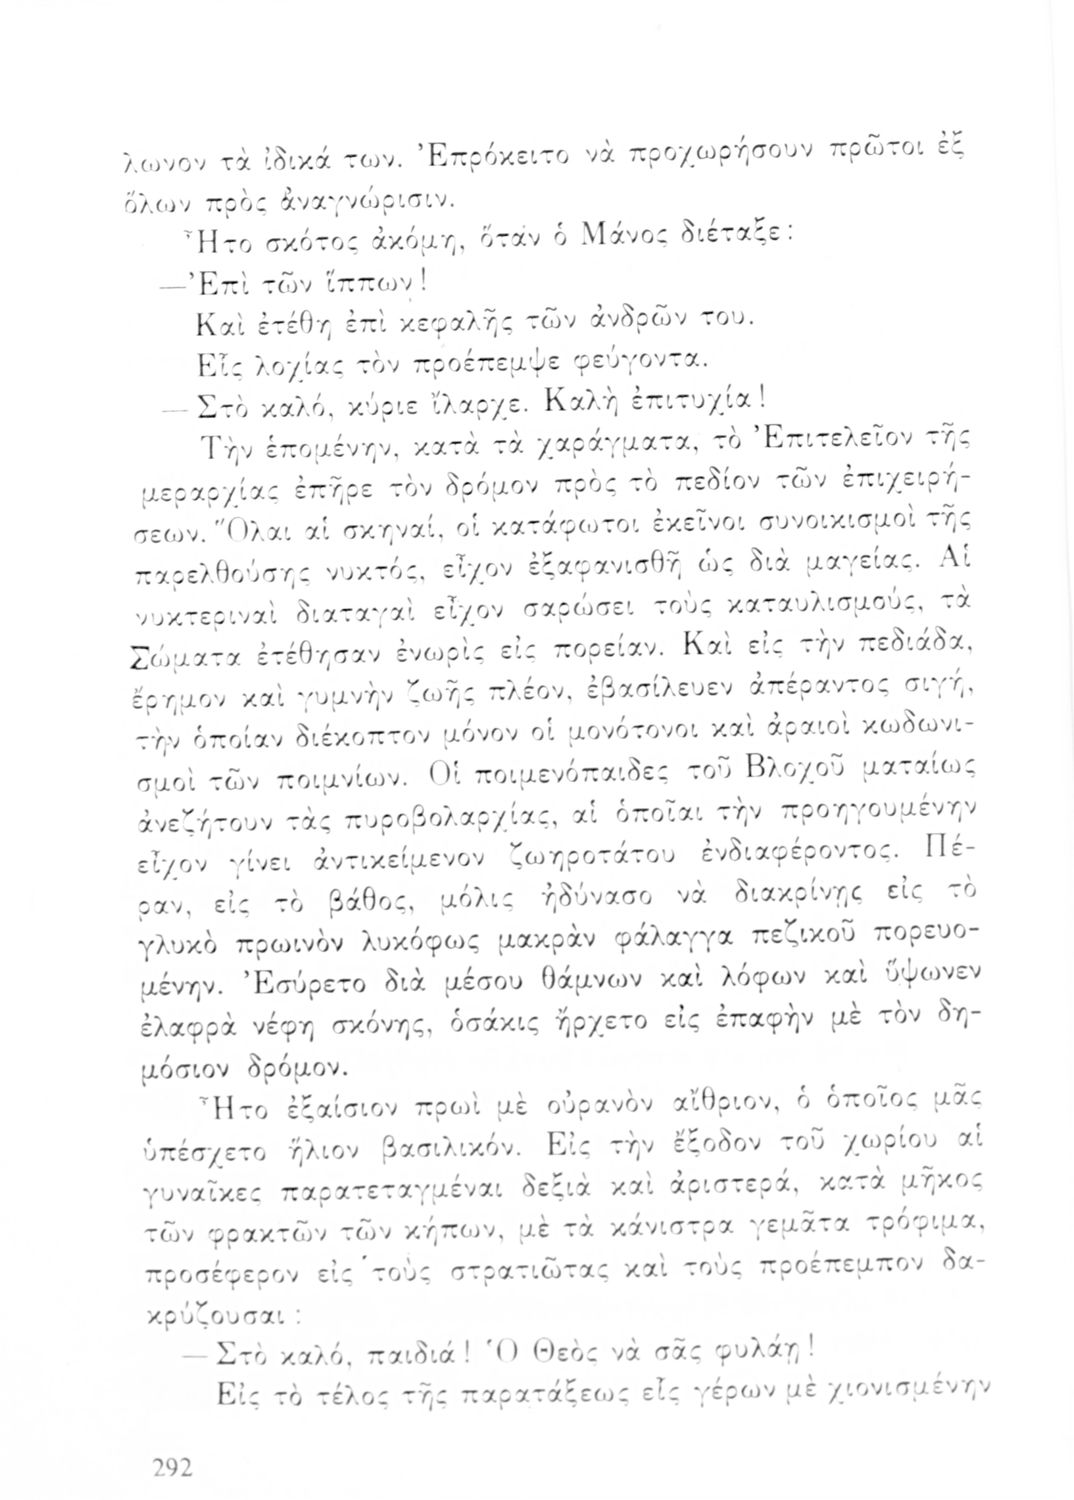 λωνον τὰ ἰδικά των. Ἐπρόκειτο νὰ προχωρήσουν πρῶτοι ἐξ
ὅλων πρὸς ἀναγνώρισιν.
Ἦτο σκότος ἀκόμη, ὅταν ὁ Μάνος διέταξε:
—Ἐπὶ τῶν ἵππων!
Καὶ ἐτέθη ἐπὶ κεφαλῆς τῶν ἀνδρῶν του.
Εἷς λοχίας τὸν προέπεμψε φεύγοντα.
— Στὸ καλό, κύριε ἴλαρχε. Καλὴ ἐπιτυχία!
Τὴν ἑπομένην, κατὰ τὰ χαράγματα, τὸ Ἐπιτελεῖον τῆς
μεραρχίας ἐπῆρε τὸν δρόμον πρὸς τὸ πεδίον τῶν ἐπιχειρή-
σεων. Ὅλαι αἱ σκηναί, οἱ κατάφωτοι ἐκεῖνοι συνοικισμοὶ τῆς
παρελθούσης νυκτός, εἶχον ἐξαφανισθῆ ὡς διὰ μαγείας. Αἱ
νυκτεριναὶ διαταγαὶ εἶχον σαρώσει τοὺς καταυλισμούς, τὰ
Σώματα ἐτέθησαν ἐνωρὶς εἰς πορείαν. Καὶ εἰς τὴν πεδιάδα,
ἔρημον καὶ γυμνὴν ζωῆς πλέον, ἐβασίλευεν ἀπέραντος σιγή,
τὴν ὁποίαν διέκοπτον μόνον οἱ μονότονοι καὶ ἀραιοὶ κωδωνι-
σμοὶ τῶν ποιμνίων. Οἱ ποιμενόπαιδες τοῦ Βλοχοῦ ματαίως
ἀνεζήτουν τὰς πυροβολαρχίας, αἱ ὁποῖαι τὴν προηγουμένην
εἶχον γίνει ἀντικείμενον ζωηροτάτου ἐνδιαφέροντος. Πέ-
ραν, εἰς τὸ βάθος, μόλις ἠδύνασο νὰ διακρίνῃς εἰς τὸ
γλυκὸ πρωινὸν λυκόφως μακρὰν φάλαγγα πεζικοῦ πορευο-
μένην. Ἐσύρετο διὰ μέσου θάμνων καὶ λόφων καὶ ὕψωνεν
ἐλαφρὰ νέφη σκόνης, ὁσάκις ἤρχετο εἰς ἐπαφὴν μὲ τὸν δη-
μόσιον δρόμον.
Ἦτο ἐξαίσιον πρωὶ μὲ οὐρανὸν αἴθριον, ὁ ὁποῖος μᾶς
ὑπέσχετο ἥλιον βασιλικόν. Εἰς τὴν ἔξοδον τοῦ χωρίου αἱ
γυναῖκες παρατεταγμέναι δεξιὰ καὶ ἀριστερά, κατὰ μῆκος
τῶν φρακτῶν τῶν κήπων, μὲ τὰ κάνιστρα γεμᾶτα τρόφιμα,
προσέφερον εἰς τοὺς στρατιῶτας καὶ τοὺς προέπεμπον δα-
κρύζουσαι :
— Στὸ καλό, παιδιά! Ὁ Θεὸς νὰ σᾶς φυλάῃ!
Εἰς τὸ τέλος τῆς παρατάξεως εἷς γέρων μὲ χιονισμένην
292